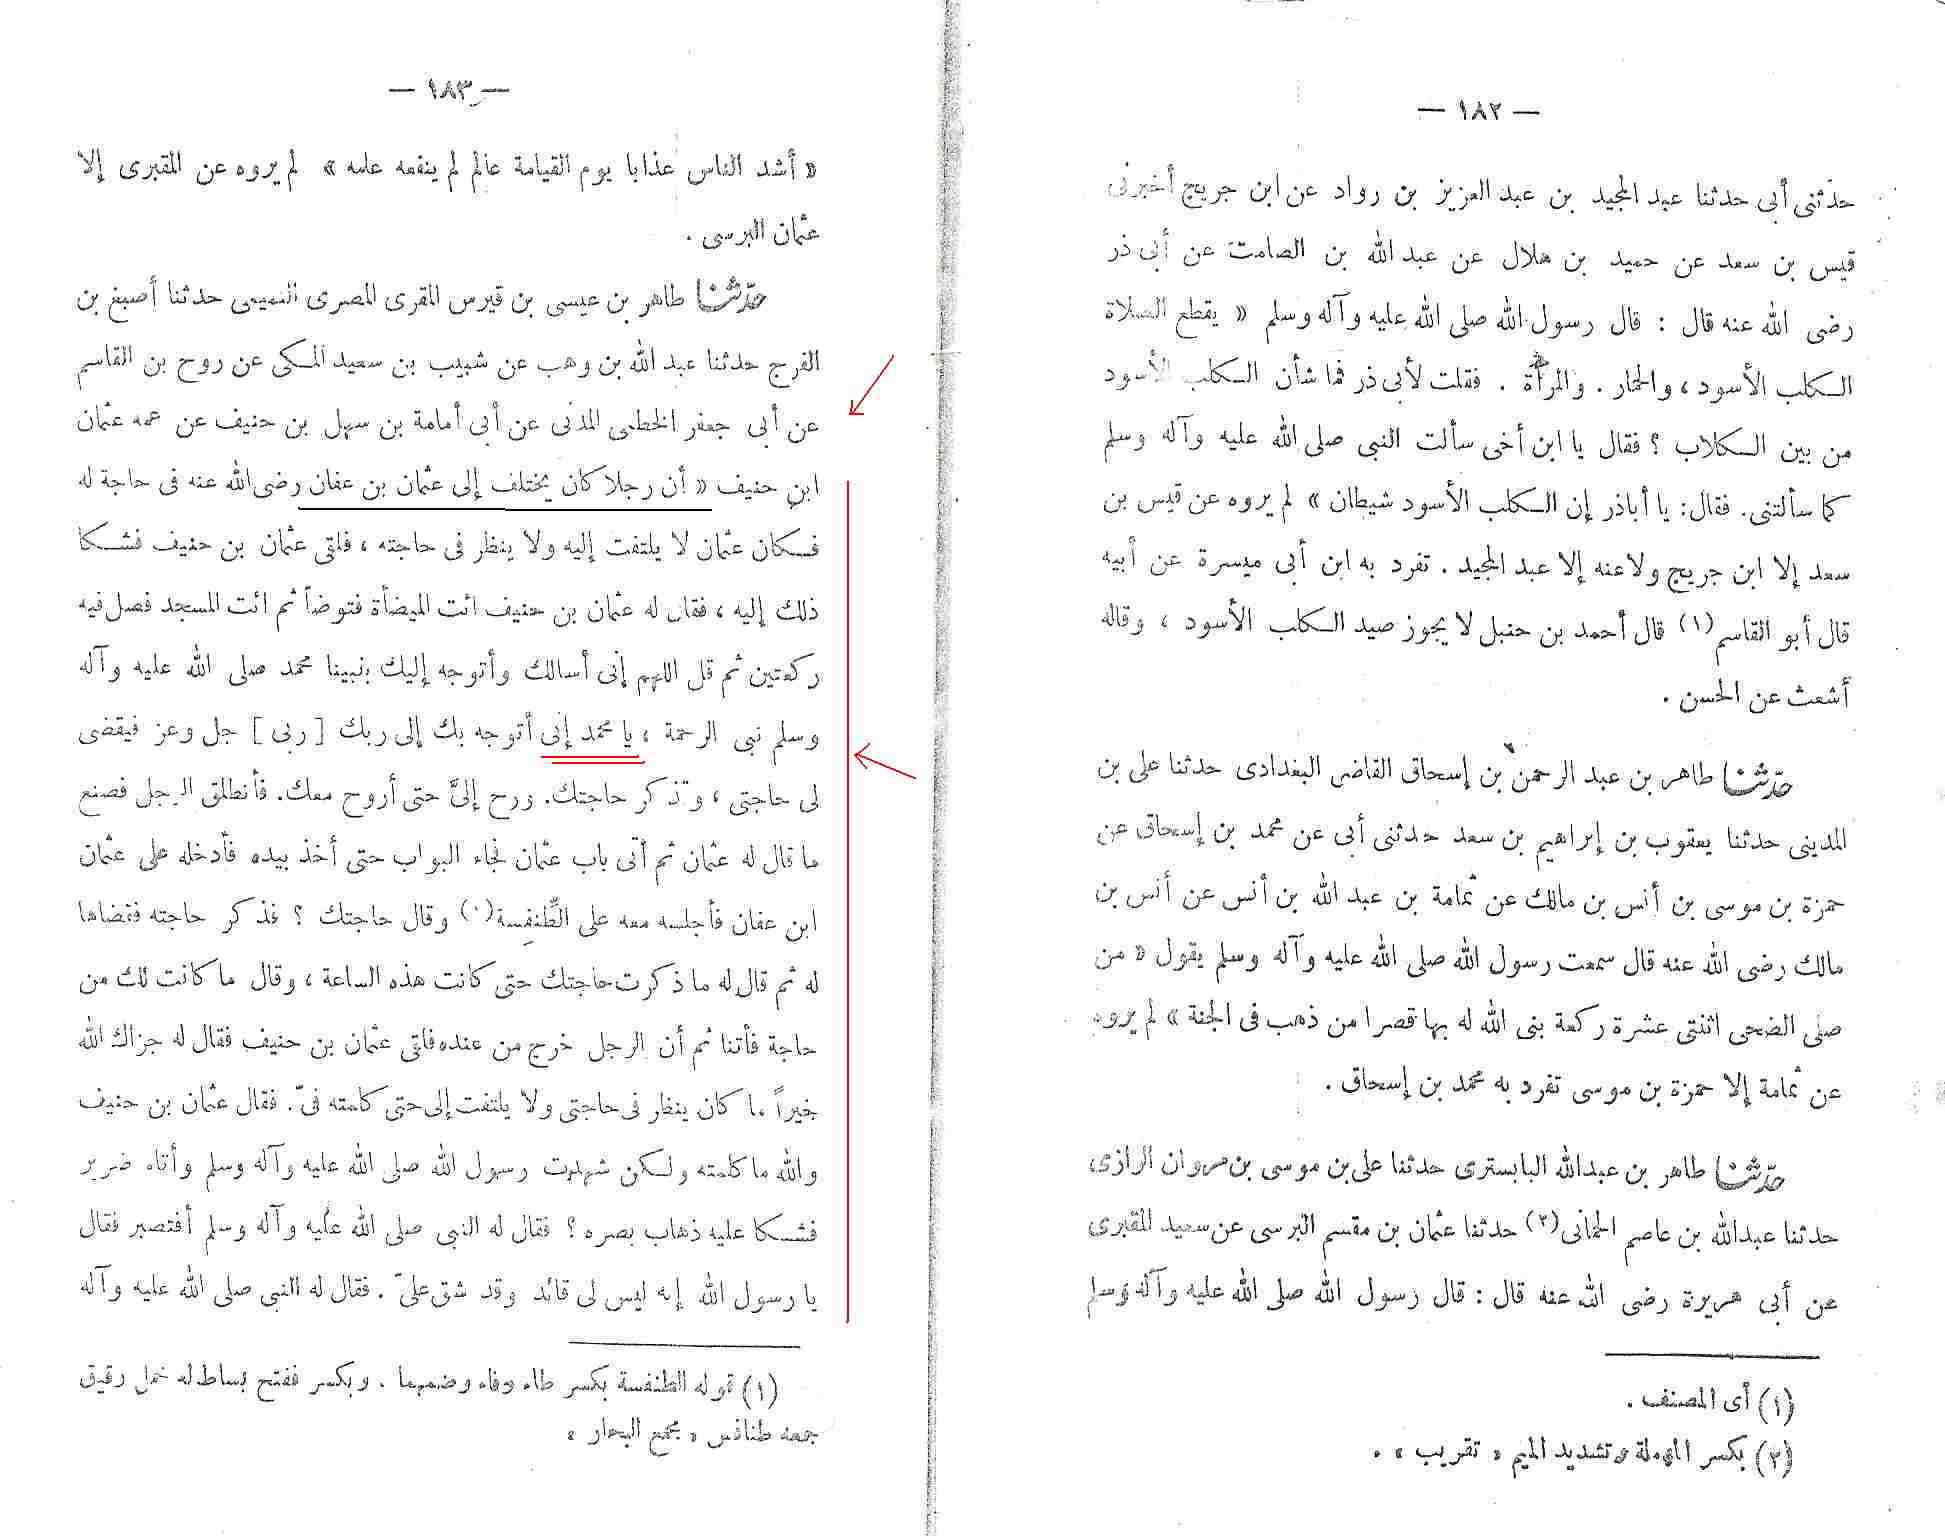 — ١٨٢ —
حدثنى أبى حدثنا عبد المجيد بن عبد العزيز بن رواد عن ابن جريج أخبرنى
قيس بن سعد عن حميد بن هلال عن عبد الله بن الصامت عن أبى ذر
رضى الله عنه قال : قال رسول الله صلى الله عليه وآله وسلم « يقطع الصلاة
الكلب الأسود ، والحمار . والمرأة . فقلت لأبى ذر فما شأن الكلب الأسود
من بين الكلاب ؟ فقال يا ابن أخى سألت النبى صلى الله عليه وآله وسلم
كما سألتنى. فقال: يا أباذر إن الكلب الأسود شيطان » لم يروه عن قيس بن
سعد إلا ابن جريج ولاعنه إلا عبد المجيد . تفرد به ابن أبى ميسرة عن أبيه
قال أبو القاسم (١) قال أحمد بن حنبل لا يجوز صيد الكلب الأسود ، وقاله
أشعث عن الحسن .
حدّثنا طاهر بن عبد الرحمن بن إسحاق القاضى البغدادى حدثنا على بن
المدينى حدثنا يعقوب بن إبراهيم بن سعد حدثنى أبى عن محمد بن إسحاق عن
حمزة بن موسى بن أنس بن مالك عن ثمامة بن عبد الله بن أنس عن أنس بن
مالك رضى الله عنه قال سمعت رسول الله صلى الله عليه وآله وسلم يقول « من
صلى الضحى اثنتى عشرة ركعة بنى الله له بها قصرا من ذهب فى الجنة » لم يروه
عن ثمامة إلا حمزة بن موسى تفرد به محمد بن إسحاق .
حدّثنا طاهر بن عبدالله البابسترى حدثنا على بن موسى بن مروان الرازى
حدثنا عبدالله بن عاصم الحمانى (٢) حدثنا عثمان بن مقسم البرسى عن سعيد المقبرى
عن أبى هريرة رضى الله عنه قال : قال رسول الله صلى الله عليه وآله وسلم
(١) أى المصنف .
(٢) بكسر المهملة وتشديد الميم « تقريب » .
— ١٨٣ —
« أشد الناس عذابا يوم القيامة عالم لم ينفعه علمه » لم يروه عن المقبرى إلا
عثمان البرسى .
حدّثنا طاهر بن عيسى بن قيرس المقرى المصرى التميمى حدثنا أصبغ بن
الفرج حدثنا عبد الله بن وهب عن شبيب بن سعيد المكى عن روح بن القاسم
عن أبى جعفر الخطمى المدنى عن أبى أمامة بن سهل بن حنيف عن عمه عثمان
ابن حنيف « أن رجلا كان يختلف إلى عثمان بن عفان رضى الله عنه فى حاجة له
فكان عثمان لا يلتفت إليه ولا ينظر فى حاجته ، فلقى عثمان بن حنيف فشكا
ذلك إليه ، فقال له عثمان بن حنيف ائت الميضأة فتوضأ ثم ائت المسجد فصل فيه
ركعتين ثم قل اللهم إنى أسالك وأتوجه إليك بنبينا محمد صلى الله عليه وآله
وسلم نبى الرحمة ، يا محمد إنى أتوجه بك إلى ربك [ ربى ] جل وعز فيقضى
لى حاجتى ، وتذكر حاجتك. ورح إلىَّ حتى أروح معك. فأنطلق الرجل فصنع
ما قال له عثمان ثم أتى باب عثمان فجاء البواب حتى أخذ بيده فأدخله على عثمان
ابن عفان فأجلسه معه على الطِّنفِسة (١) وقال حاجتك ؟ فذكر حاجته فقضاها
له ثم قال له ما ذكرت حاجتك حتى كانت هذه الساعة ، وقال ما كانت لك من
حاجة فأتنا ثم أن الرجل خرج من عنده فلقى عثمان بن حنيف فقال له جزاك الله
خيراً ما كان ينظر فى حاجتى ولا يلتفت إلى حتى كلمته فىّ. فقال عثمان بن حنيف
والله ما كلمته ولكن شهدت رسول الله صلى الله عليه وآله وسلم وأتاه ضرير
فشكا عليه ذهاب بصره ؟ فقال له النبى صلى الله عليه وآله وسلم أفتصبر فقال
يا رسول الله إنه ليس لى قائد وقد شق علىّ . فقال له النبى صلى الله عليه وآله
(١) قوله الطنفسة بكسر طاء وفاء وضمهما . وبكسر ففتح بساط له خمل رقيق
جمعه طنافس « مجمع البحار »